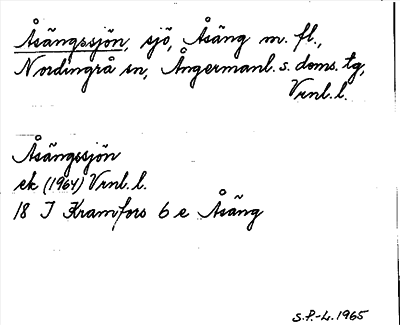 Åsängssjön, sjö, Åsäng m. fl.,
Nordingrå sn, Ångermanl. s. doms. tg,
Vrnl. l.
Åsängssjön
ek (1964) Vrnl. l.
18 I Kramfors 6 e Åsäng
S.P.-L. 1965